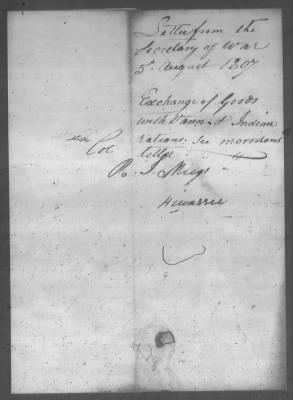 Letter from the
Secretary of War
5th August 1807
Exchange of Goods
with Vann & Indian
rations. See
letter
Col.
R. J. Meigs
Hiwassee